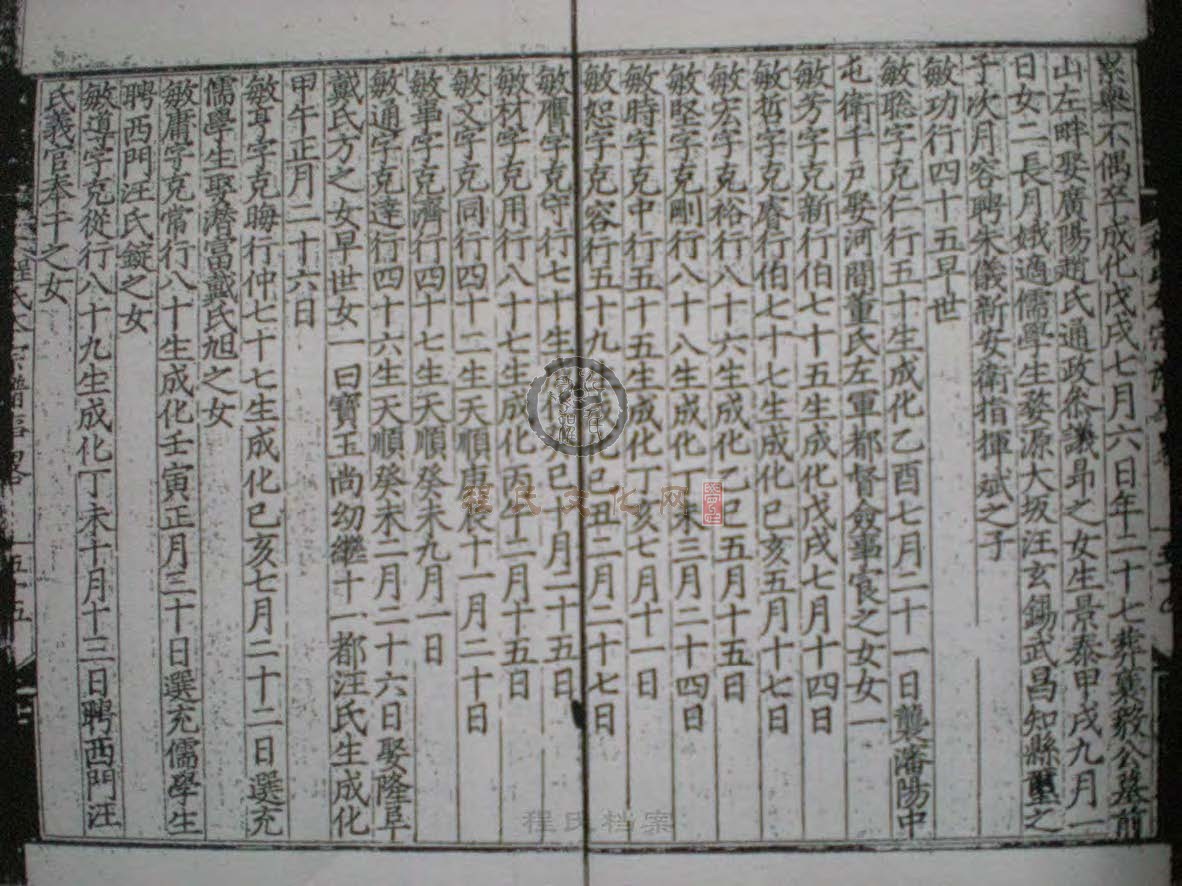 累舉不偶卒成化戊戌七月六日年二十七葬襄毅公墓前
山左畔娶廣陽趙氏通政叅議昂之女生景泰甲戌九月一
日女二長月娥適儒學生婺源大坂汪玄錫武昌知縣璽之
子次月容聘朱儀新安衛指揮斌之子
敏功行四十五早世
敏聡字克仁行五十生成化乙酉七月二十一日襲瀋陽中
屯衛千戶娶河間董氏左軍都督僉事宸之女女一
敏芳字克新行伯七十五生成化戊戌七月十四日
敏哲字克睿行伯七十七生成化己亥五月十七日
敏宏字克裕行八十六生成化乙巳五月十五日
敏堅字克剛行八十八生成化丁未三月二十四日
敏時字克中行五十五生成化丁亥七月十一日
敏恕字克容行五十九生成化己丑二月二十七日
敏膺字克守行七十生己十月二十五日
敏材字克用行八十七生成化丙午十二月十五日
敏文字克同行四十二生天順庚辰十一月二十日
敏事字克濟行四十七生天順癸未九月一日
敏通字克達行四十六生天順癸未二月二十六日娶隆阜
戴氏方之女早世女一曰寶玉尚幼繼十一都汪氏生成化
甲午正月二十六日
敏亨字克晦行仲七十七生成化己亥七月二十二日選充
儒學生娶潛富戴氏旭之女
敏庸字克常行八十生成化壬寅正月三十日選充儒學生
聘西門汪氏錠之女
敏道字克從行八十九生成化丁未十月十三日聘西門汪
氏義官奉干之女
程氏文化网
程氏档案